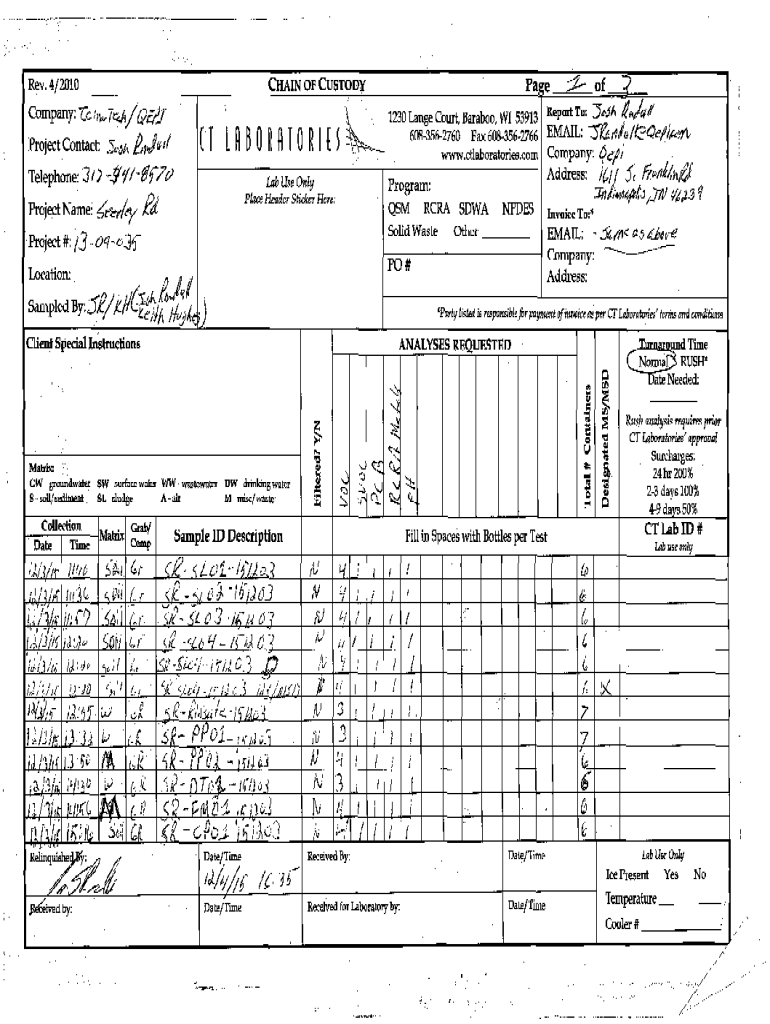 Rev. 4/2010
CHAIN OF CUSTODY
Page 2 of
Company:
Project Contact: Josh Randall
Telephone: 312-441-8570
Project Name: Seerley Rd
Project #: 13-09-035
Location:
Sampled By: JR/KH (Josh Randall
Keith Hughes)
CT LABORATORIES
Lab Use Only
Place Header Sticker Here:
1230 Lange Court, Baraboo, WI 53913
608-356-2760 Fax 608-356-2766
www.ctlaboratories.com
Program:
QSM RCRA SDWA NPDES
Solid Waste Other
PO #
Report To: Josh Randall
EMAIL:
Company: Qepi
Address: 1611 S. Franklin Rd
Indianapolis, IN 46239
Invoice To:*
EMAIL: - Same as above
Company:
Address:
*Party listed is responsible for payment of invoice as per CT Laboratories' terms and conditions
Client Special Instructions
Matrix:
GW groundwater SW surface water WW wastewater DW drinking water
S - soil/sediment SL sludge A - air M misc/waste
Filtered? Y/N
ANALYSES REQUESTED
VOC
SVOC
PCB
RCRA Metals
PH
Total # Containers
Designated MS/MSD
Turnaround Time
Normal RUSH*
Date Needed:
Rush analysis requires prior
CT Laboratories' approval
Surcharges:
24 hr 200%
2-3 days 100%
4-9 days 50%
Collection
Date Time
Matrix
Grab/
Comp
Sample ID Description
Fill in Spaces with Bottles per Test
CT Lab ID #
Lab use only
12/3/15 Soil Gr N 4 1 1 1 1 6
12/3/15 11:36 Soil Gr SR-SL02-151203 N 4 1 1 1 1 6
12/3/15 11:57 Soil Gr SR-SL03-151203 N 4 1 1 1 1 6
12/3/15 Soil Gr SR-SL04-151203 N 4 1 1 1 1 6
12/3/15 Soil SR-SL04-151203 D N 4 1 1 1 1 6
12/3/15 Soil Gr SR SL04-151203 4 1 1 1 1 X
12/3/15 12:55 W GR SR-Rinsate-151203 N 3 1 1 1 1 7
12/3/15 13:33 W GR SR-PP01-151203 N 3 1 1 1 1 7
12/3/15 13:50 GR SR-PP02-151203 N 4 1 1 1 1 6
12/3/15 W GR N 3 1 1 1 1 6
12/3/15 GR N 4 1 1 1 1 6
12/3/15 Soil GR N 4 1 1 1 1 6
Relinquished By:
Date/Time
12/4/15 16:35
Received By:
Date/Time
Lab Use Only
Ice Present Yes No
Temperature
Cooler #
Received by:
Date/Time
Received for Laboratory by:
Date/Time